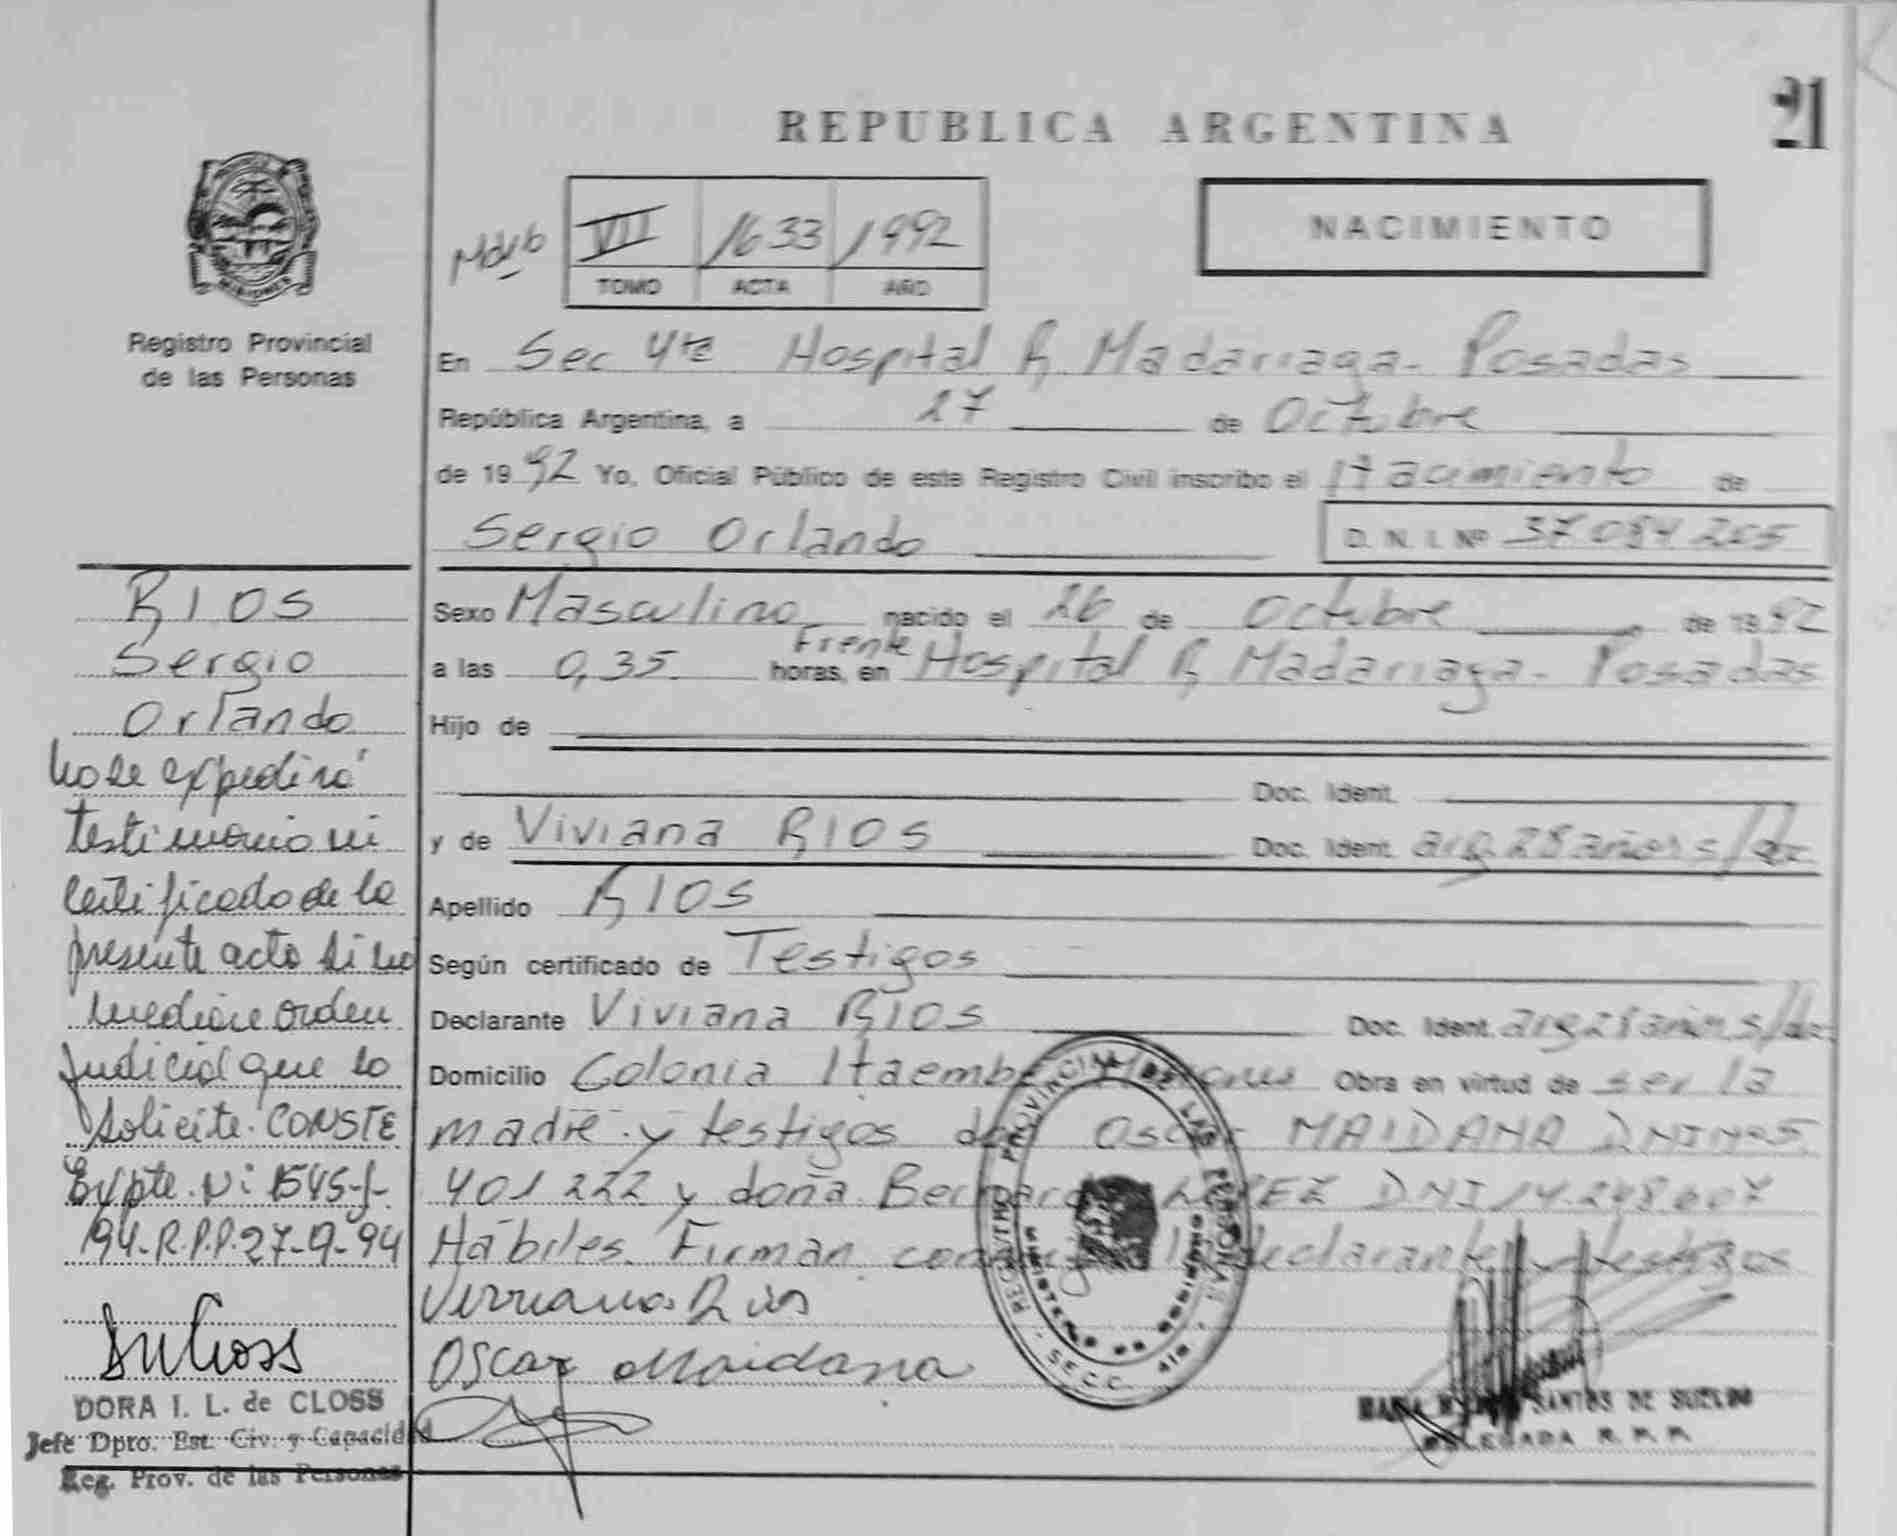 21
REPUBLICA ARGENTINA
NACIMIENTO
VII 1633 1992
TOMO ACTA AÑO
MISIONES
Registro Provincial
de las Personas
En Sec 4ta Hospital R. Madariaga - Posadas
República Argentina, a 27 de Octubre
de 1992 Yo, Oficial Público de este Registro Civil inscribo el Nacimiento de
Sergio Orlando D. N. I. Nº 37 084 205
Sexo Masculino nacido el 26 de Octubre de 1992
Frente
a las 0,35 horas, en Hospital R. Madariaga - Posadas
Hijo de
Doc. Ident.
y de Viviana RIOS Doc. Ident. arg 28 años s/doc
Apellido RIOS
Según certificado de Testigos
Declarante Viviana RIOS Doc. Ident. arg 28 años s/doc
Domicilio Colonia Itaembé Obra en virtud de ser la
madre y testigos don Oscar MAIDANA DNI Nº 5.
401 222 y doña LOPEZ DNI 14.248.007
Hábiles. Firman declarante y testigos
Viviana Rios
Oscar Maidana
RIOS
Sergio
Orlando
No se expedirá
testimonio ni
certificado de la
presente acta si no
mediare orden
Judicial que lo
Solicite. CONSTE
Expte. Nº 1545-J-
94-R.P.P. 27-9-94
DORA I. L. de CLOSS
Jefe Dpto. Est. Civ. y Capacidad
Reg. Prov. de las Personas
REGISTRO PROVINCIAL DE LAS PERSONAS
MINISTERIO DE GOBIERNO
SECC. 4ta
SANTOS DE SUELDO
DELEGADA R. P. P.